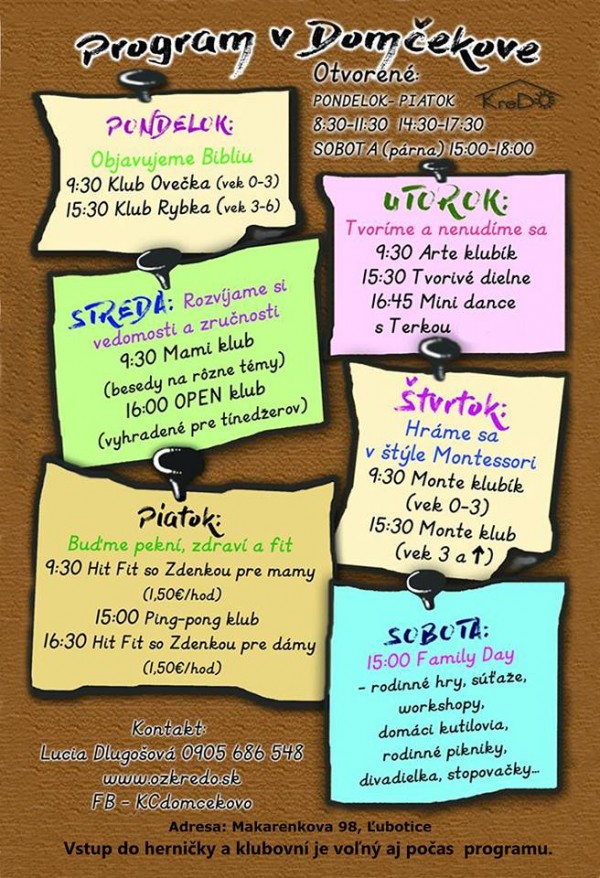 Program v Domčekove
Otvorené:
PONDELOK- PIATOK
8:30-11:30 14:30-17:30
SOBOTA (párna) 15:00-18:00
KreDO
PONDELOK:
Objavujeme Bibliu
9:30 Klub Ovečka (vek 0-3)
15:30 Klub Rybka (vek 3-6)
UTOROK:
Tvoríme a nenudíme sa
9:30 Arte klubík
15:30 Tvorivé dielne
16:45 Mini dance
s Terkou
STREDA: Rozvíjame si
vedomosti a zručnosti
9:30 Mami klub
(besedy na rôzne témy)
16:00 OPEN klub
(vyhradené pre tínedžerov)
Štvrtok:
Hráme sa
v štýle Montessori
9:30 Monte klubík
(vek 0-3)
15:30 Monte klub
(vek 3 a ↑)
Piatok:
Buďme pekní, zdraví a fit
9:30 Hit Fit so Zdenkou pre mamy
(1,50€/hod)
15:00 Ping-pong klub
16:30 Hit Fit so Zdenkou pre dámy
(1,50€/hod)
SOBOTA:
15:00 Family Day
- rodinné hry, súťaže,
workshopy,
domáci kutilovia,
rodinné pikniky,
divadielka, stopovačky...
Kontakt:
Lucia Dlugošová 0905 686 548
www.ozkredo.sk
FB - KCdomcekovo
Adresa: Makarenkova 98, Ľubotice
Vstup do herničky a klubovní je voľný aj počas programu.